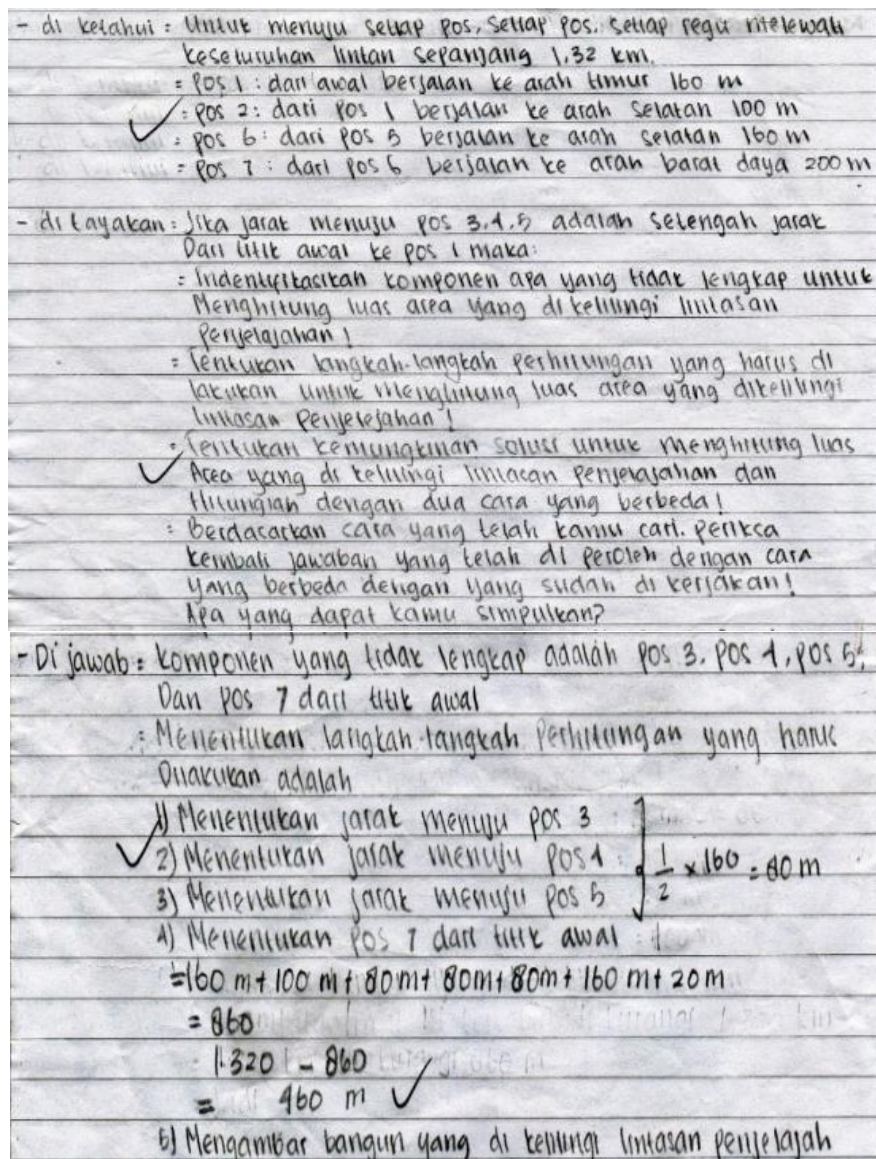 - di ketahui : Untuk menuju setiap pos, setiap pos. setiap regu melewati
keseluruhan lintan sepanjang 1,32 km.
= Pos 1 : dari awal berjalan ke arah timur 160 m
= Pos 2 : dari Pos 1 berjalan ke arah selatan 100 m
= Pos 6 : dari Pos 5 berjalan ke arah selatan 160 m
= Pos 7 : dari Pos 6 berjalan ke arah barat daya 200 m
- di tayakan : Jika jarak menuju pos 3.4.5 adalah setengah jarak
Dari titik awal ke pos 1 maka :
= Indentifitasikan komponen apa yang tidak lengkap untuk
Menghitung luas area yang di kelilingi lintasan
penjelajahan !
= Tentukan langkah-langkah perhitungan yang harus di
lakukan untuk menghitung luas area yang dikelilingi
lintasan penjelejahan !
= Tentukan kemungkinan solusi untuk menghitung luas
Area yang di kelilingi lintasan penjelajahan dan
Hitunglah dengan dua cara yang berbeda !
= Berdasarkan cara yang telah kamu cari. periksa
kembali jawaban yang telah di peroleh dengan cara
yang berbeda dengan yang sudah di kerjakan !
Apa yang dapat kamu simpulkan?
- Di jawab = komponen yang tidak lengkap adalah pos 3. pos 4, pos 5,
Dan pos 7 dari titik awal
= Menentukan langkah-langkah Perhitungan yang harus
Dilakukan adalah
1) Menentukan jarak menuju pos 3
2) Menentukan jarak menuju pos 4 : 1/2 × 160 = 80 m
3) Menentukan jarak menuju pos 5
4) Menentukan pos 7 dari titik awal :
= 160 m + 100 m + 80 m + 80 m + 80 m + 160 m + 20 m
= 860
1.320 - 860
= 460 m
5) Mengambar bangun yang di kelilingi lintasan penjelajah